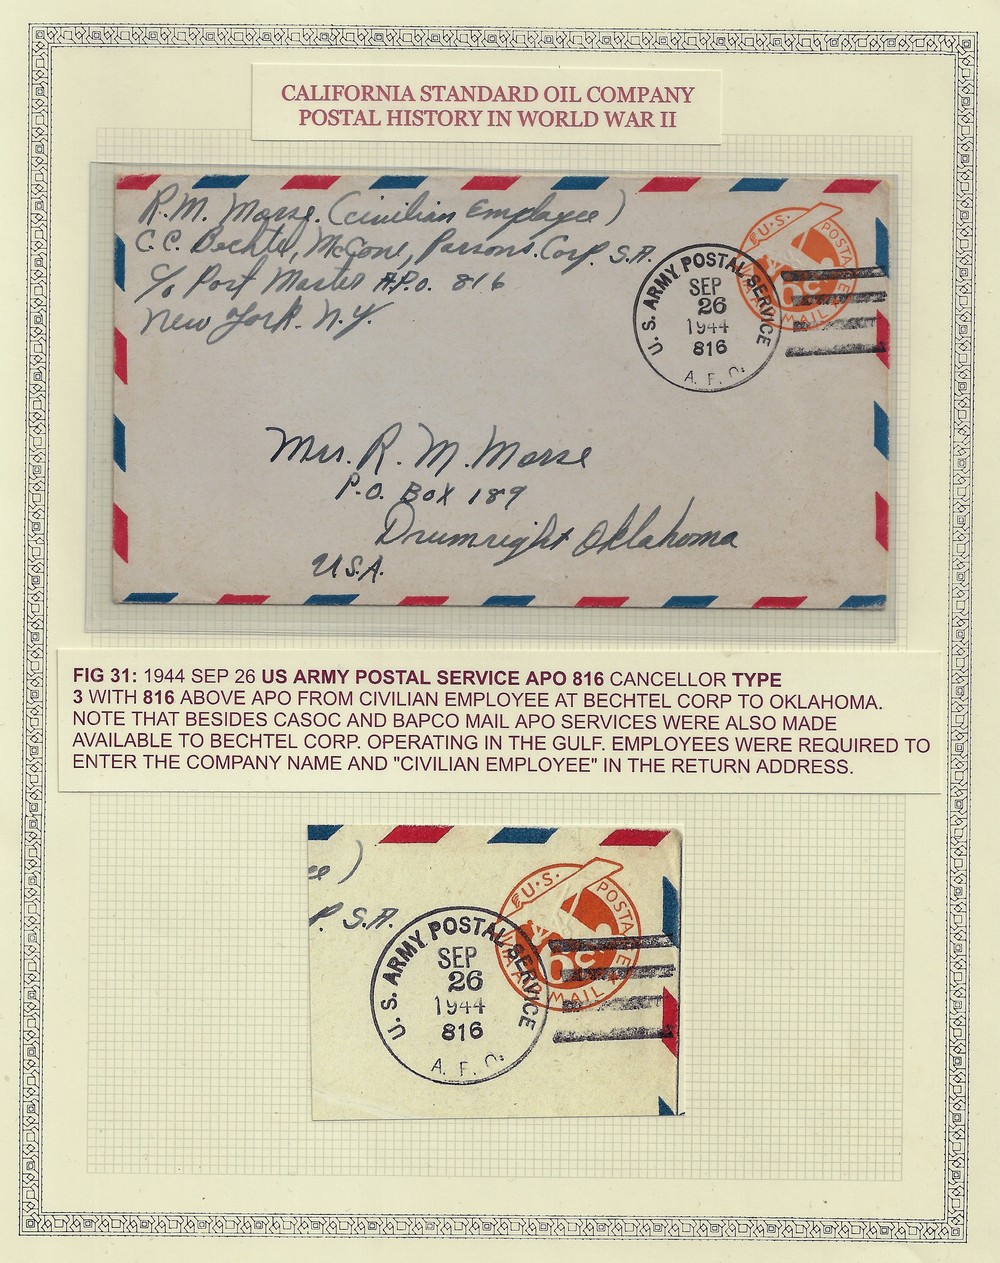 CALIFORNIA STANDARD OIL COMPANY
POSTAL HISTORY IN WORLD WAR II
R.M. Morse. (civilian Employee)
C.C. Bechtel, McCone, Parsons. Corp. S.A.
c/o Post Master A.P.O. 816
New York. N.Y.
U.S. POSTAGE
6c
VIA AIR MAIL
U.S. ARMY POSTAL SERVICE
SEP
26
1944
816
A. P. O.
Mrs. R. M. Morse
P.O. Box 189
Drumright Oklahoma
U.S.A.
FIG 31: 1944 SEP 26 US ARMY POSTAL SERVICE APO 816 CANCELLOR TYPE
3 WITH 816 ABOVE APO FROM CIVILIAN EMPLOYEE AT BECHTEL CORP TO OKLAHOMA.
NOTE THAT BESIDES CASOC AND BAPCO MAIL APO SERVICES WERE ALSO MADE
AVAILABLE TO BECHTEL CORP. OPERATING IN THE GULF. EMPLOYEES WERE REQUIRED TO
ENTER THE COMPANY NAME AND "CIVILIAN EMPLOYEE" IN THE RETURN ADDRESS.
ee)
P. S.A.
U.S. POSTAGE
6c
VIA AIR MAIL
U.S. ARMY POSTAL SERVICE
SEP
26
1944
816
A. P. O.